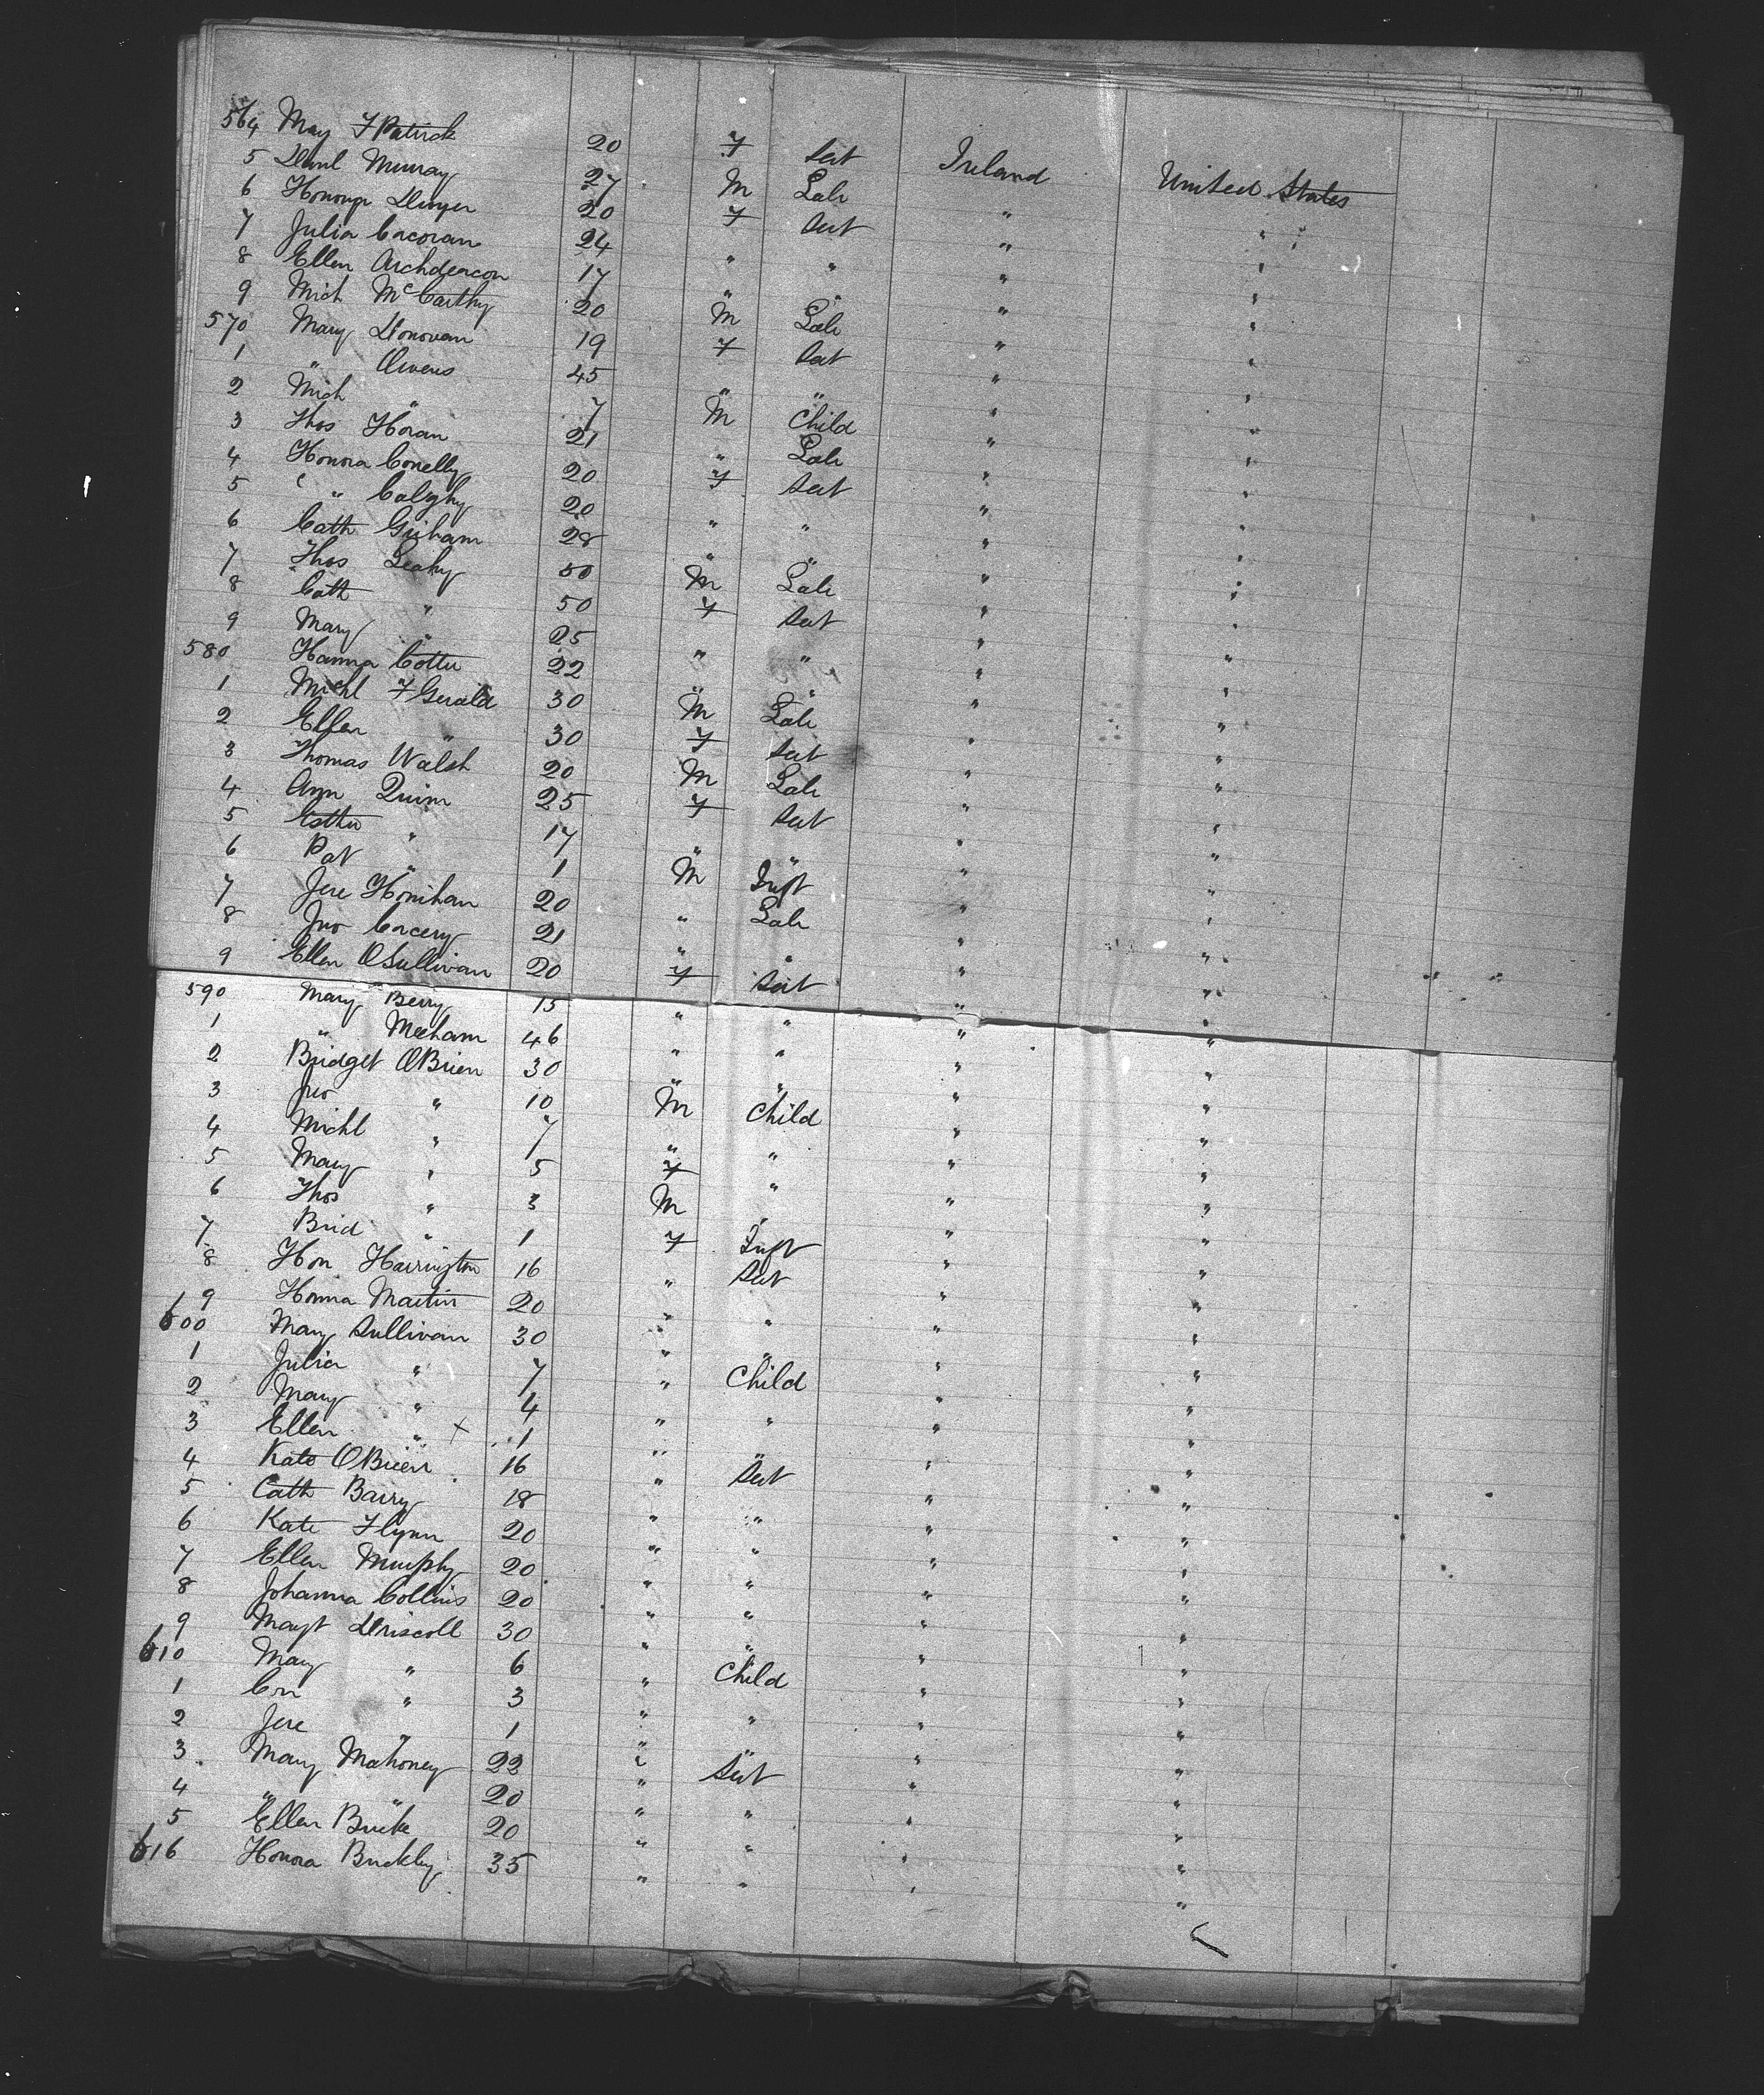 564 May FPatrick 20 F Sert Ireland United States
5 Danl Murray 27 M Lab " "
6 Honora Dwyer 20 F Sert " "
7 Julia Cacoran 24 " " " "
8 Ellen Archdeacon 17 " " " "
9 Mich McCarthy 20 M Lab " "
570 Mary Donovan 19 F Sert " "
1 " Owens 45 " " " "
2 Mich " 7 M Child " "
3 Thos Horan 21 " Lab " "
4 Honora Conelly 20 F Sert " "
5 " 20 " " " "
6 Cath 28 " " " "
7 Thos Leahy 50 M Lab " "
8 Cath " 50 F Sert " "
9 Mary " 25 " " " "
580 Hanna Cotter 22 " " " "
1 Michl FGerald 30 M Lab " "
2 Ellen " 30 F Sert " "
3 Thomas Walsh 20 M Lab " "
4 Ann Quinn 25 F Sert " "
5 Esther " 17 " " " "
6 Pat " 1 M Inft " "
7 Jere Honihan 20 " Lab " "
8 Jno 21 " " " "
9 Ellen OSullivan 20 F Sert " "
590 Mary Berry 15 " " " "
1 " Meeham 46 " " " "
2 Bridget OBrien 30 " " " "
3 Jno " 10 M Child " "
4 Michl " 7 " " " "
5 Mary " 5 F " " "
6 Thos " 3 M " " "
7 Brid " 1 F Inft " "
8 Hon Harrington 16 " Sert " "
9 Honna Martin 20 " " " "
600 Mary Sullivan 30 " " " "
1 Julia " 7 " Child " "
2 Mary " 4 " " " "
3 Ellen " x 1 " " " "
4 Kate OBrien 16 " Sert " "
5 Cath Barry 18 " " " "
6 Kate Flynn 20 " " " "
7 Ellen Murphy 20 " " " "
8 Johanna Collins 20 " " " "
9 Magt Driscoll 30 " " " "
610 Mary " 6 " Child " "
1 Con " 3 " " " "
2 Jere " 1 " " " "
3 Mary Mahoney 22 " Sert " "
4 " " 20 " " " "
5 Ellen Burke 20 " " " "
616 Honora Buckley 35 " " " "